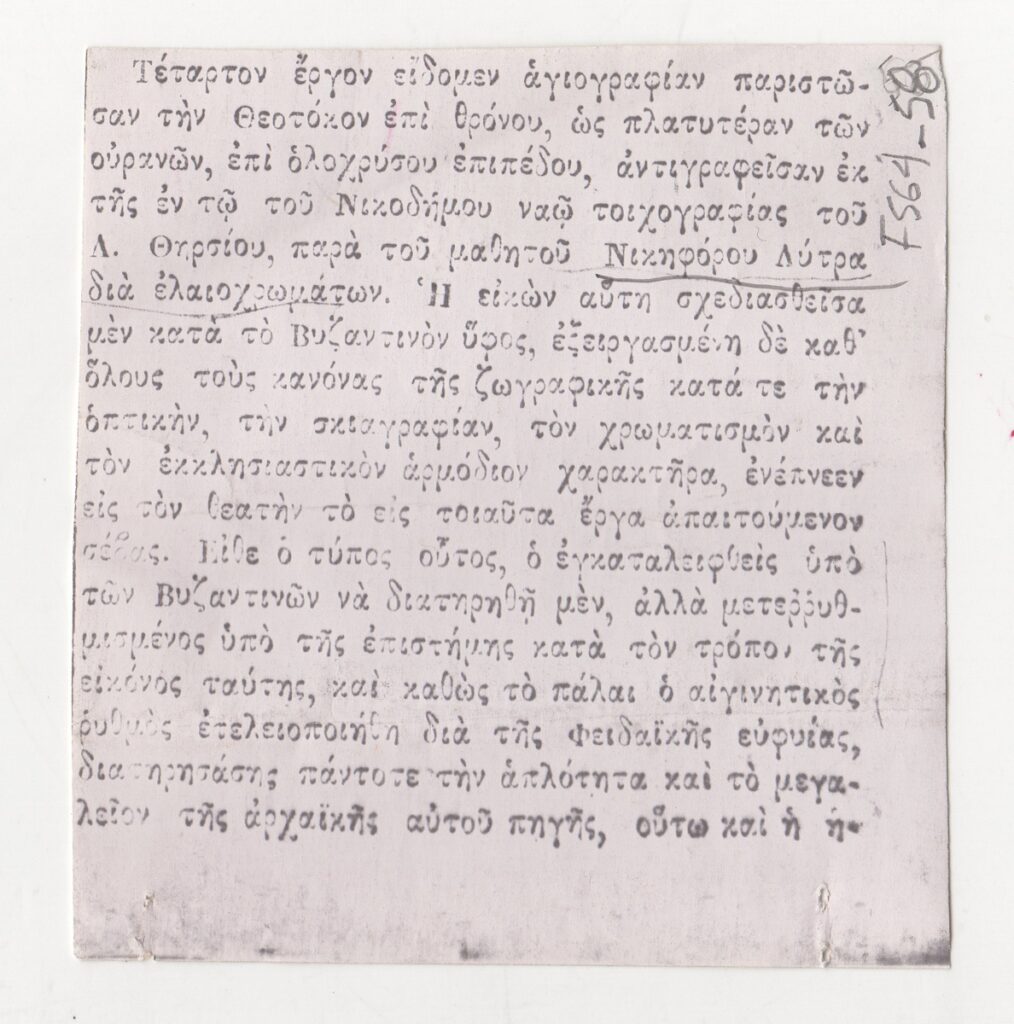 Τέταρτον ἔργον εἴδομεν ἁγιογραφίαν παριστῶ-
σαν τὴν Θεοτόκον ἐπὶ θρόνου, ὡς πλατυτέραν τῶν
οὐρανῶν, ἐπὶ ὁλοχρύσου ἐπιπέδου, ἀντιγραφεῖσαν ἐκ
τῆς ἐν τῷ τοῦ Νικοδήμου ναῷ τοιχογραφίας τοῦ
Λ. Θηρσίου, παρὰ τοῦ μαθητοῦ Νικηφόρου Λύτρα
διὰ ἐλαιοχρωμάτων. Ἡ εἰκὼν αὕτη σχεδιασθεῖσα
μὲν κατὰ τὸ Βυζαντινὸν ὕφος, ἐξειργασμένη δὲ καθ’
ὅλους τοὺς κανόνας τῆς ζωγραφικῆς κατά τε τὴν
ὀπτικὴν, τὴν σκιαγραφίαν, τὸν χρωματισμὸν καὶ
τὸν ἐκκλησιαστικὸν ἁρμόδιον χαρακτῆρα, ἐνέπνεεν
εἰς τὸν θεατὴν τὸ εἰς τοιαῦτα ἔργα ἀπαιτούμενον
σέβας. Εἴθε ὁ τύπος οὗτος, ὁ ἐγκαταλειφθεὶς ὑπὸ
τῶν Βυζαντινῶν νὰ διατηρηθῇ μὲν, ἀλλὰ μετεῤῥυθ-
μισμένος ὑπὸ τῆς ἐπιστήμης κατὰ τὸν τρόπον τῆς
εἰκόνος ταύτης, καὶ καθὼς τὸ πάλαι ὁ αἰγινητικὸς
ῥυθμὸς ἐτελειοποιήθη διὰ τῆς Φειδαϊκῆς εὐφυΐας,
διατηρησάσης πάντοτε τὴν ἁπλότητα καὶ τὸ μεγα-
λεῖον τῆς ἀρχαϊκῆς αὐτοῦ πηγῆς, οὕτω καὶ ἡ ἡ-